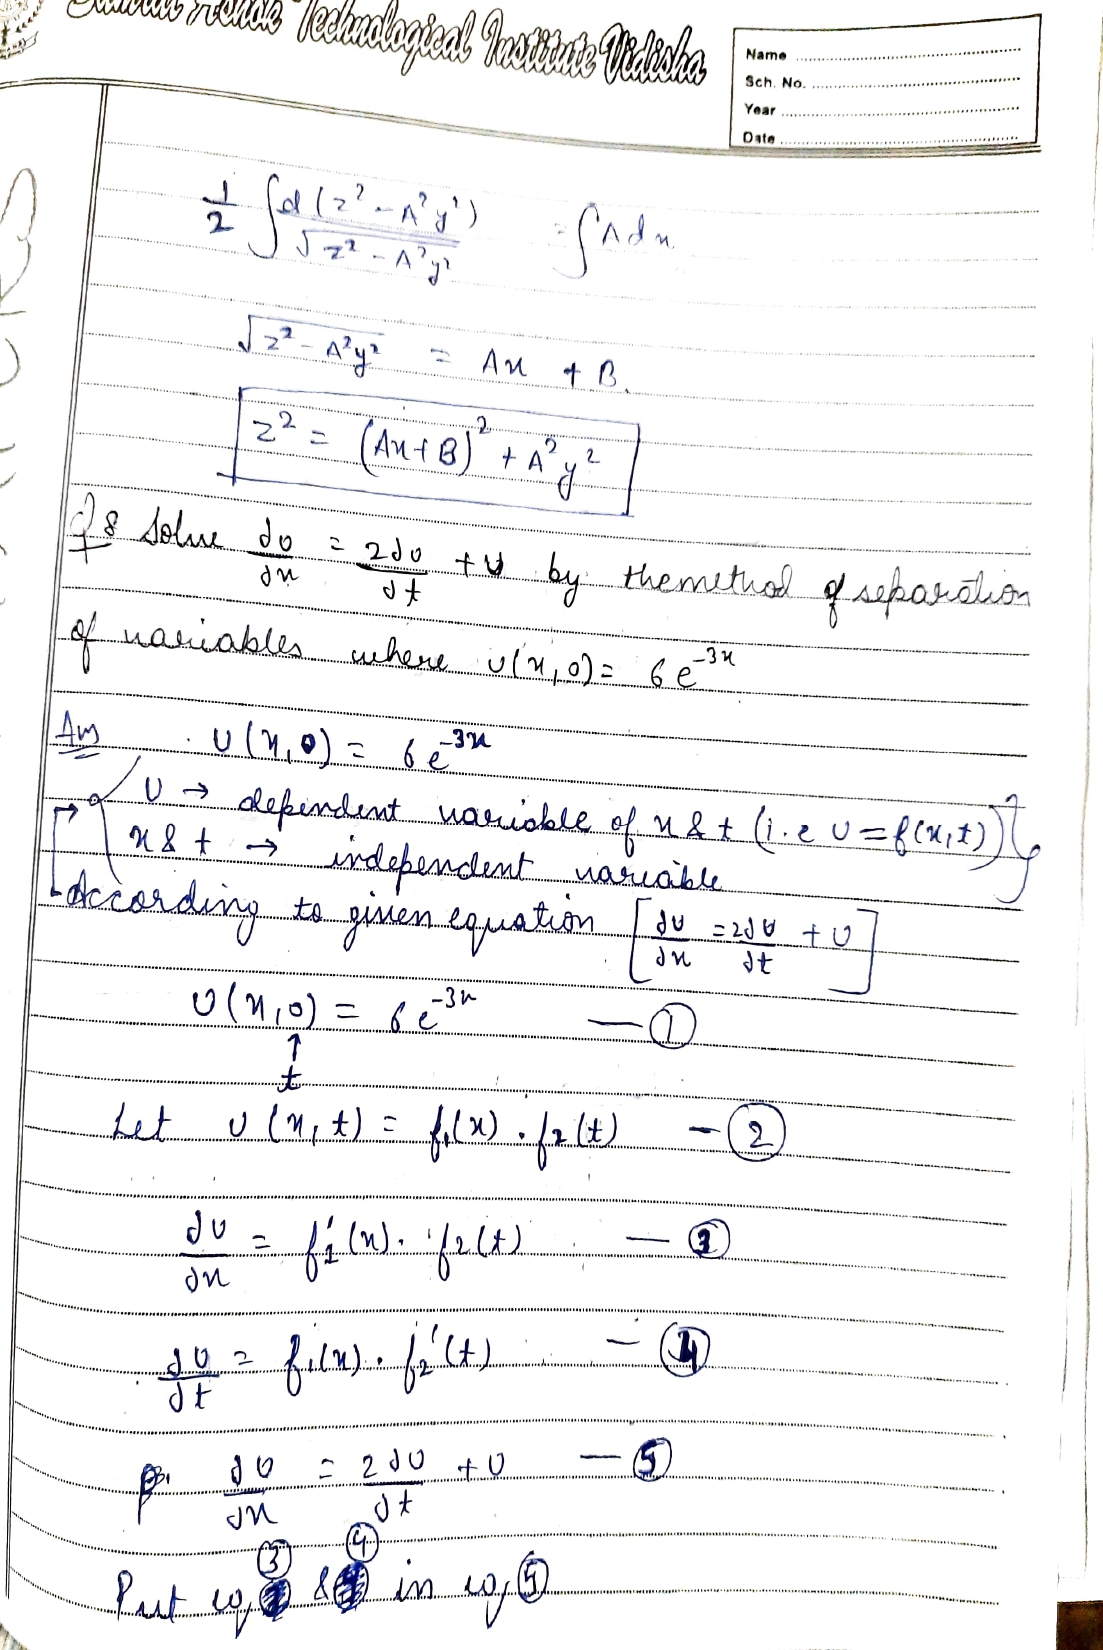 Ashok Technological Institute Vidisha
Name
Sch. No.
Year
Date
1/2 ∫ d(z² - A²y²) / √(z² - A²y²) = ∫ A dx
√(z² - A²y²) = Ax + B.
z² = (Ax+B)² + A²y²
Q8 Solve ∂u/∂x = 2∂u/∂t + u by the method of separation
of variables where u(x,0) = 6e^(-3x)
Ans u(x,0) = 6e^(-3x)
u → dependent variable of x & t (i.e u = f(x,t))
x & t → independent variable
According to given equation [∂u/∂x = 2∂u/∂t + u]
u(x,0) = 6e^(-3x) — ①
↑
t
Let u(x,t) = f₁(x) . f₂(t) — ②
∂u/∂x = f₁'(x) . f₂(t) — ③
∂u/∂t = f₁(x) . f₂'(t) — ④
∂u/∂x = 2∂u/∂t + u — ⑤
Put eq, ③ & ④ in eq, ⑤